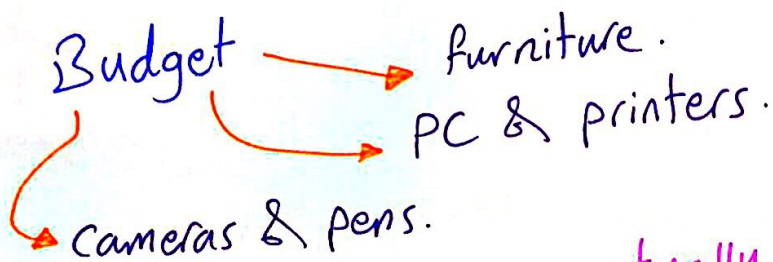 Budget
furniture.
PC & printers.
cameras & pens.